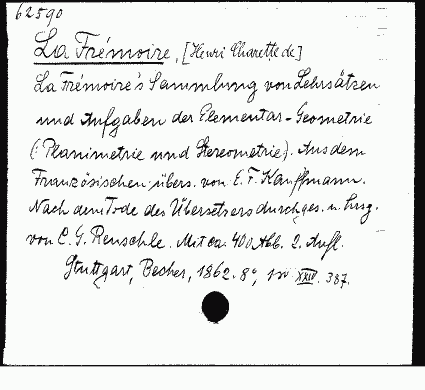 62590
La Frémoire, [Henri Charette de]
La Frémoire's Sammlung von Lehrsätzen
und Aufgaben der Elementar-Geometrie
(: Planimetrie und Stereometrie). Aus dem
Französischen übers. von E. F. Kauffmann.
Nach dem Tode des Übersetzers durchges. u. hrsg.
von C. G. Reuschle. Mit ca. 400 Abb. 2. Aufl.
Stuttgart, Becher, 1862. 8°, XXIV. 387.